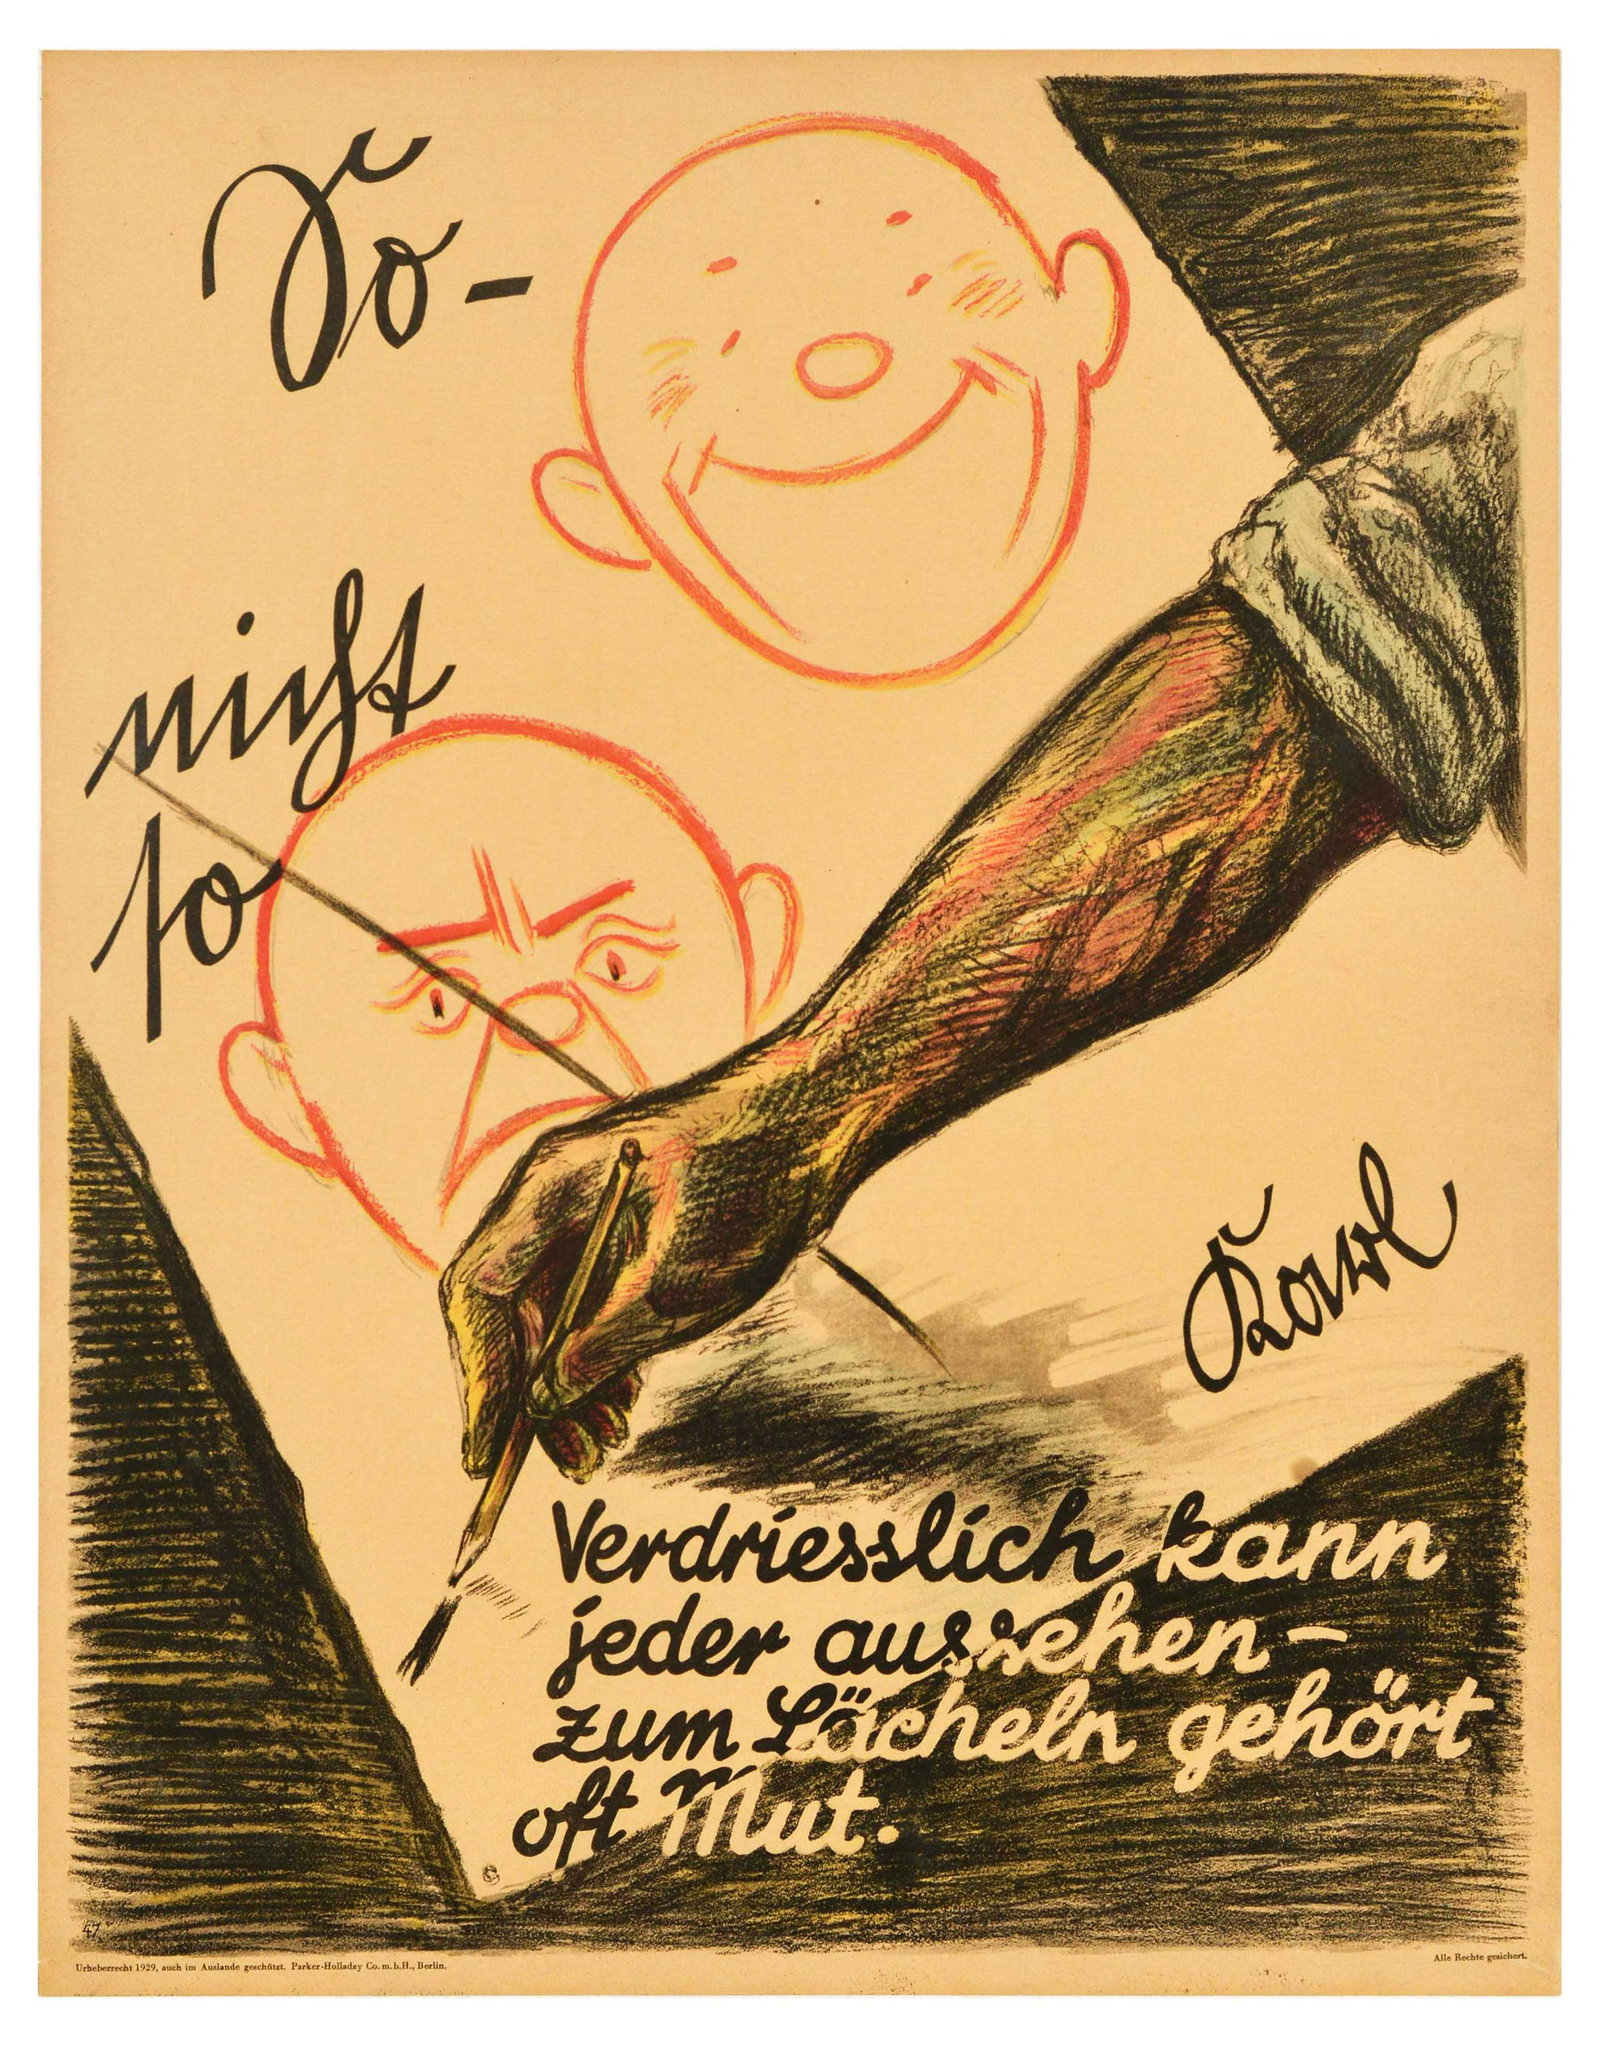 So-
nicht
so
Karl
Verdriesslich kann
jeder aussehen –
zum Lächeln gehört
oft Mut.
47
Urheberrecht 1929, auch im Auslande geschützt. Parker-Holladay Co. m. b. H., Berlin.
Alle Rechte gesichert.